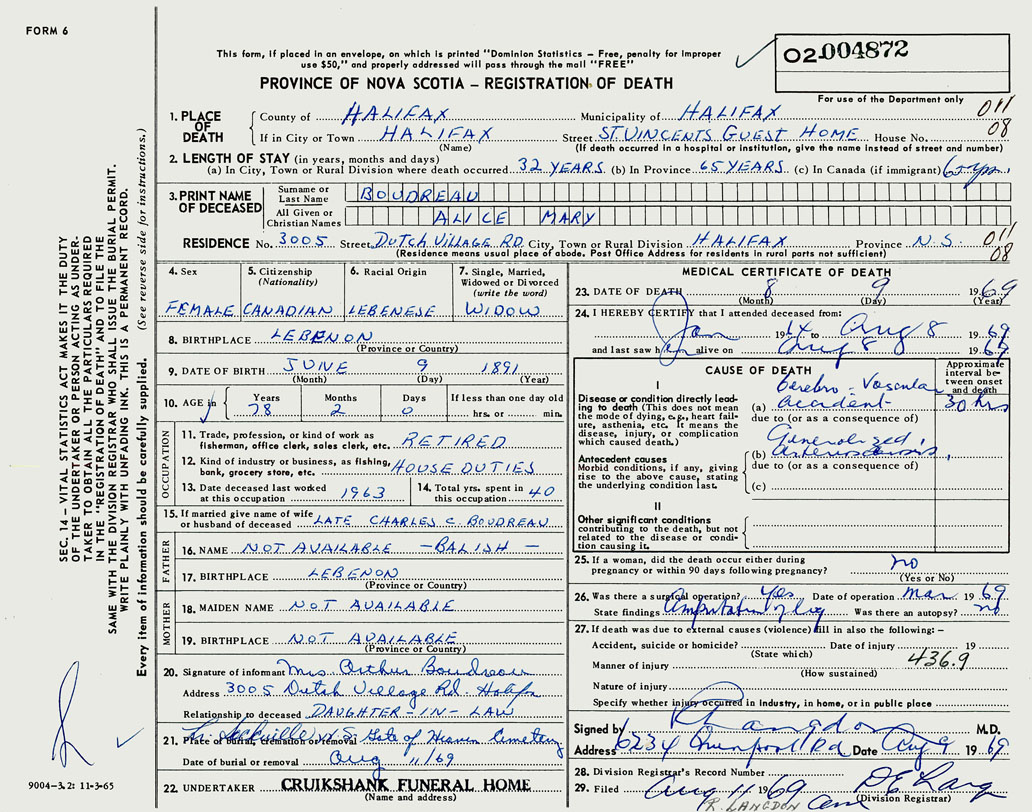 FORM 6
This form, if placed in an envelope, on which is printed "Dominion Statistics - Free, penalty for improper
use $50," and properly addressed will pass through the mail "FREE"
02 004872
PROVINCE OF NOVA SCOTIA - REGISTRATION OF DEATH
For use of the Department only
1. PLACE OF DEATH County of HALIFAX Municipality of HALIFAX 011
If in City or Town HALIFAX Street ST. VINCENTS GUEST HOME House No. 08
(Name) (If death occurred in a hospital or institution, give the name instead of street and number)
2. LENGTH OF STAY (in years, months and days)
(a) In City, Town or Rural Division where death occurred 32 YEARS (b) In Province 65 YEARS (c) In Canada (if immigrant) 65 yrs.
3. PRINT NAME OF DECEASED
Surname or Last Name BOUDREAU
All Given or Christian Names ALICE MARY
RESIDENCE No. 3005 Street DUTCH VILLAGE RD City, Town or Rural Division HALIFAX Province N.S. 011
(Residence means usual place of abode. Post Office Address for residents in rural parts not sufficient) 08
4. Sex FEMALE
5. Citizenship (Nationality) CANADIAN
6. Racial Origin LEBENESE
7. Single, Married, Widowed or Divorced (write the word) WIDOW
8. BIRTHPLACE LEBENON
(Province or Country)
9. DATE OF BIRTH JUNE 9 1891
(Month) (Day) (Year)
10. AGE in Years 78 Months 2 Days 0 If less than one day old
hrs. or min.
OCCUPATION
11. Trade, profession, or kind of work as
fisherman, office clerk, sales clerk, etc. RETIRED
12. Kind of industry or business, as fishing,
bank, grocery store, etc. HOUSE DUTIES
13. Date deceased last worked
at this occupation 1963
14. Total yrs. spent in
this occupation 40
15. If married give name of wife
or husband of deceased LATE CHARLES C. BOUDREAU
FATHER
16. NAME NOT AVAILABLE - BALISH -
17. BIRTHPLACE LEBENON
(Province or Country)
MOTHER
18. MAIDEN NAME NOT AVAILABLE
19. BIRTHPLACE NOT AVAILABLE
(Province or Country)
20. Signature of informant Mrs Arthur Boudreau
Address 3005 Dutch Village Rd. Halifax
Relationship to deceased DAUGHTER-IN-LAW
21. Place of burial, cremation or removal Sackville N.S. Gate of Heaven Cemetery
Date of burial or removal Aug 11/69
22. UNDERTAKER CRUIKSHANK FUNERAL HOME
(Name and address)
MEDICAL CERTIFICATE OF DEATH
23. DATE OF DEATH 8 9 1969
(Month) (Day) (Year)
24. I HEREBY CERTIFY that I attended deceased from:
Jan 19 to Aug 8 1969
and last saw h alive on Aug 8 1969
CAUSE OF DEATH
Approximate interval between onset and death
I
Disease or condition directly leading to death (This does not mean the mode of dying, e.g., heart failure, asthenia, etc. It means the disease, injury, or complication which caused death.)
(a) Cerebro-Vascular accident 30 hrs
due to (or as a consequence of)
Antecedent causes
Morbid conditions, if any, giving rise to the above cause, stating the underlying condition last.
(b) Generalized arteriosclerosis
due to (or as a consequence of)
(c)
II
Other significant conditions
contributing to the death, but not related to the disease or condition causing it.
25. If a woman, did the death occur either during
pregnancy or within 90 days following pregnancy? no
(Yes or No)
26. Was there a surgical operation? Yes Date of operation Mar. 1969
State findings Amputation of leg Was there an autopsy? no
27. If death was due to external causes (violence) fill in also the following: -
Accident, suicide or homicide? Date of injury 19
(State which)
Manner of injury 436.9
(How sustained)
Nature of injury
Specify whether injury occurred in industry, in home, or in public place
Signed by R Langdon M.D.
Address 6234 Quinpool Rd Date Aug 9 1969
28. Division Registrar's Record Number
29. Filed Aug 11 1969
(Division Registrar)
R. LANGDON
SEC. 14 - VITAL STATISTICS ACT MAKES IT THE DUTY
OF THE UNDERTAKER OR PERSON ACTING AS UNDERTAKER TO OBTAIN ALL THE PARTICULARS REQUIRED
IN THE "REGISTRATION OF DEATH" AND TO FILE THE
SAME WITH THE DIVISION REGISTRAR WHO SHALL ISSUE THE BURIAL PERMIT.
WRITE PLAINLY WITH UNFADING INK. THIS IS A PERMANENT RECORD.
Every item of information should be carefully supplied. (See reverse side for instructions.)
9004-3.2: 11-3-65